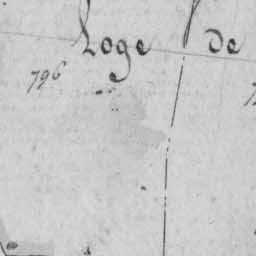 Loge de
796